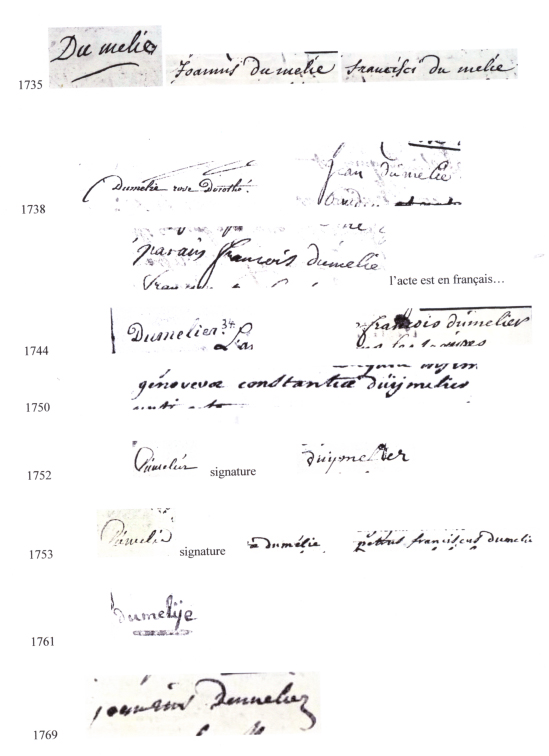 Du melie
Joannis du melie francisci du melie
1735
Dumelie rose Dorothé.
Jean Dumelie
1738
parain francois dumelie
l'acte est en français…
Dumelier 34.
françois dumelier
1744
génovevœ constantiœ duijmelier
1750
Dumelier signature duijmelier
1752
Dumelie signature a dumélie petrus franciscus dumelie
1753
dumelije
1761
joannis Dumeliez
1769